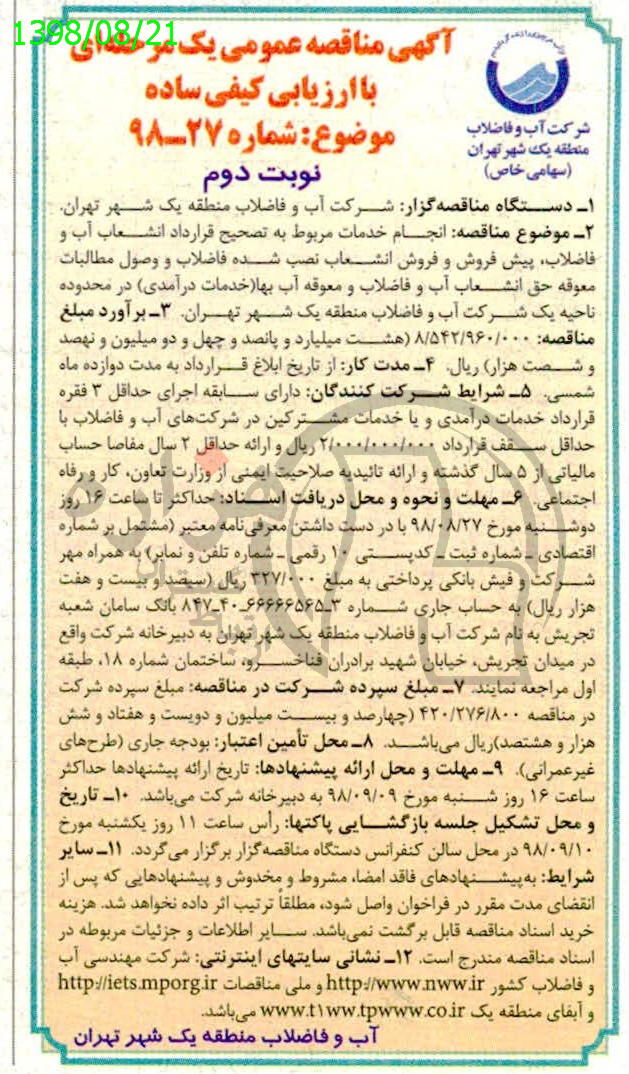 1398/08/21
آگهی مناقصه عمومی یک مرحله‌ای
با ارزیابی کیفی ساده
موضوع: شماره ۲۷ــ۹۸
نوبت دوم
شرکت آب و فاضلاب
منطقه یک شهر تهران
(سهامی خاص)
۱ــ دستگاه مناقصه‌گزار: شرکت آب و فاضلاب منطقه یک شهر تهران.
۲ــ موضوع مناقصه: انجام خدمات مربوط به تصحیح قرارداد انشعاب آب و
فاضلاب، پیش فروش و فروش انشعاب نصب شده فاضلاب و وصول مطالبات
معوقه حق انشعاب آب و فاضلاب و معوقه آب بها(خدمات درآمدی) در محدوده
ناحیه یک شرکت آب و فاضلاب منطقه یک شهر تهران. ۳ــ برآورد مبلغ
مناقصه: ۸/۵۴۲/۹۶۰/۰۰۰ (هشت میلیارد و پانصد و چهل و دو میلیون و نهصد
و شصت هزار) ریال. ۴ــ مدت کار: از تاریخ ابلاغ قرارداد به مدت دوازده ماه
شمسی. ۵ــ شرایط شرکت کنندگان: دارای سابقه اجرای حداقل ۳ فقره
قرارداد خدمات درآمدی و یا خدمات مشترکین در شرکت‌های آب و فاضلاب با
حداقل سقف قرارداد ۲/۰۰۰/۰۰۰/۰۰۰ ریال و ارائه حداقل ۲ سال مفاصا حساب
مالیاتی از ۵ سال گذشته و ارائه تائیدیه صلاحیت ایمنی از وزارت تعاون، کار و رفاه
اجتماعی. ۶ــ مهلت و نحوه و محل دریافت اسناد: حداکثر تا ساعت ۱۶ روز
دوشنبه مورخ ۹۸/۰۸/۲۷ با در دست داشتن معرفی‌نامه معتبر (مشتمل بر شماره
اقتصادی ـ شماره ثبت ـ کدپستی ۱۰ رقمی ـ شماره تلفن و نمابر) به همراه مهر
شرکت و فیش بانکی پرداختی به مبلغ ۳۲۷/۰۰۰ ریال (سیصد و بیست و هفت
هزار ریال) به حساب جاری شماره ۳ـ۶۶۶۶۶۵۶۵ـ۴۰ـ۸۴۷ بانک سامان شعبه
تجریش به نام شرکت آب و فاضلاب منطقه یک شهر تهران به دبیرخانه شرکت واقع
در میدان تجریش، خیابان شهید برادران فناخسرو، ساختمان شماره ۱۸، طبقه
اول مراجعه نمایند. ۷ــ مبلغ سپرده شرکت در مناقصه: مبلغ سپرده شرکت
در مناقصه ۴۲۰/۲۷۶/۸۰۰ (چهارصد و بیست میلیون و دویست و هفتاد و شش
هزار و هشتصد)ریال می‌باشد. ۸ــ محل تأمین اعتبار: بودجه جاری (طرح‌های
غیرعمرانی). ۹ــ مهلت و محل ارائه پیشنهادها: تاریخ ارائه پیشنهادها حداکثر
ساعت ۱۶ روز شنبه مورخ ۹۸/۰۹/۰۹ به دبیرخانه شرکت می‌باشد. ۱۰ــ تاریخ
و محل تشکیل جلسه بازگشایی پاکتها: رأس ساعت ۱۱ روز یکشنبه مورخ
۹۸/۰۹/۱۰ در محل سالن کنفرانس دستگاه مناقصه‌گزار برگزار می‌گردد. ۱۱ــ سایر
شرایط: به‌پیشنهادهای فاقد امضا، مشروط و مخدوش و پیشنهادهایی که پس از
انقضای مدت مقرر در فراخوان واصل شود، مطلقاً ترتیب اثر داده نخواهد شد. هزینه
خرید اسناد مناقصه قابل برگشت نمی‌باشد. سایر اطلاعات و جزئیات مربوطه در
اسناد مناقصه مندرج است. ۱۲ــ نشانی سایتهای اینترنتی: شرکت مهندسی آب
و فاضلاب کشور http://www.nww.ir و ملی مناقصات http://iets.mporg.ir
و آبفای منطقه یک www.t1ww.tpwww.co.ir می‌باشد.
آب و فاضلاب منطقه یک شهر تهران